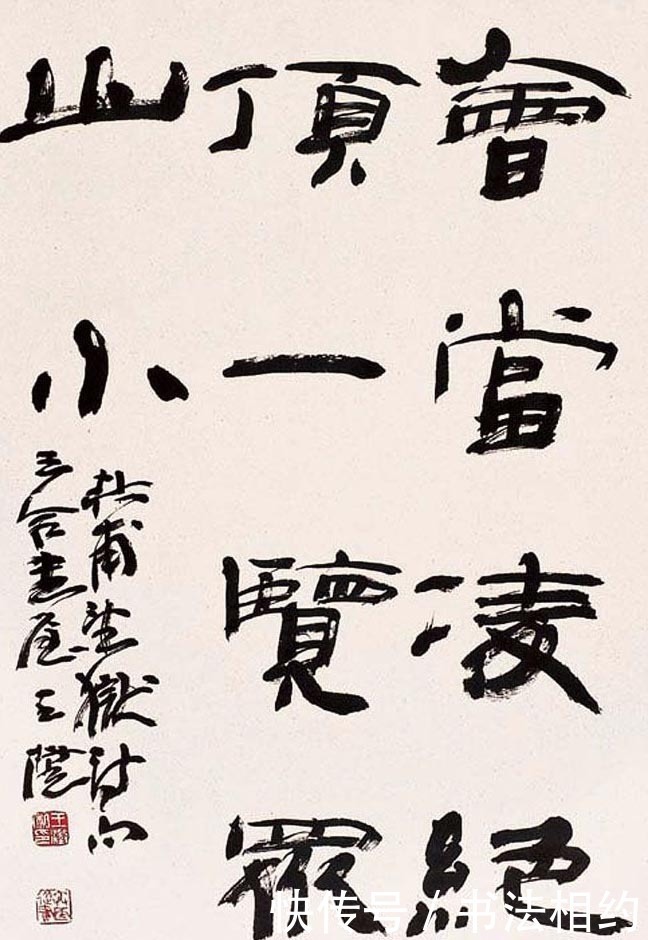 會當凌絕
頂一覽眾
山小
杜甫望嶽詩句
三合書屋王
快传号 / 书法相约